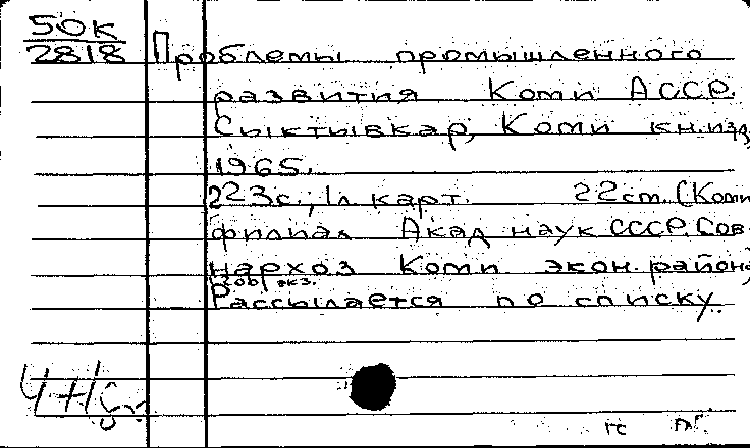 50к
2818
Проблемы промышленного
развития Коми АССР.
Сыктывкар, Коми кн.изд,
1965.
223с., 1л карт. 22см. (Коми
филиал Акад наук СССР. Сов-
нархоз Коми экон. района)
экз.
Рассылается по списку.